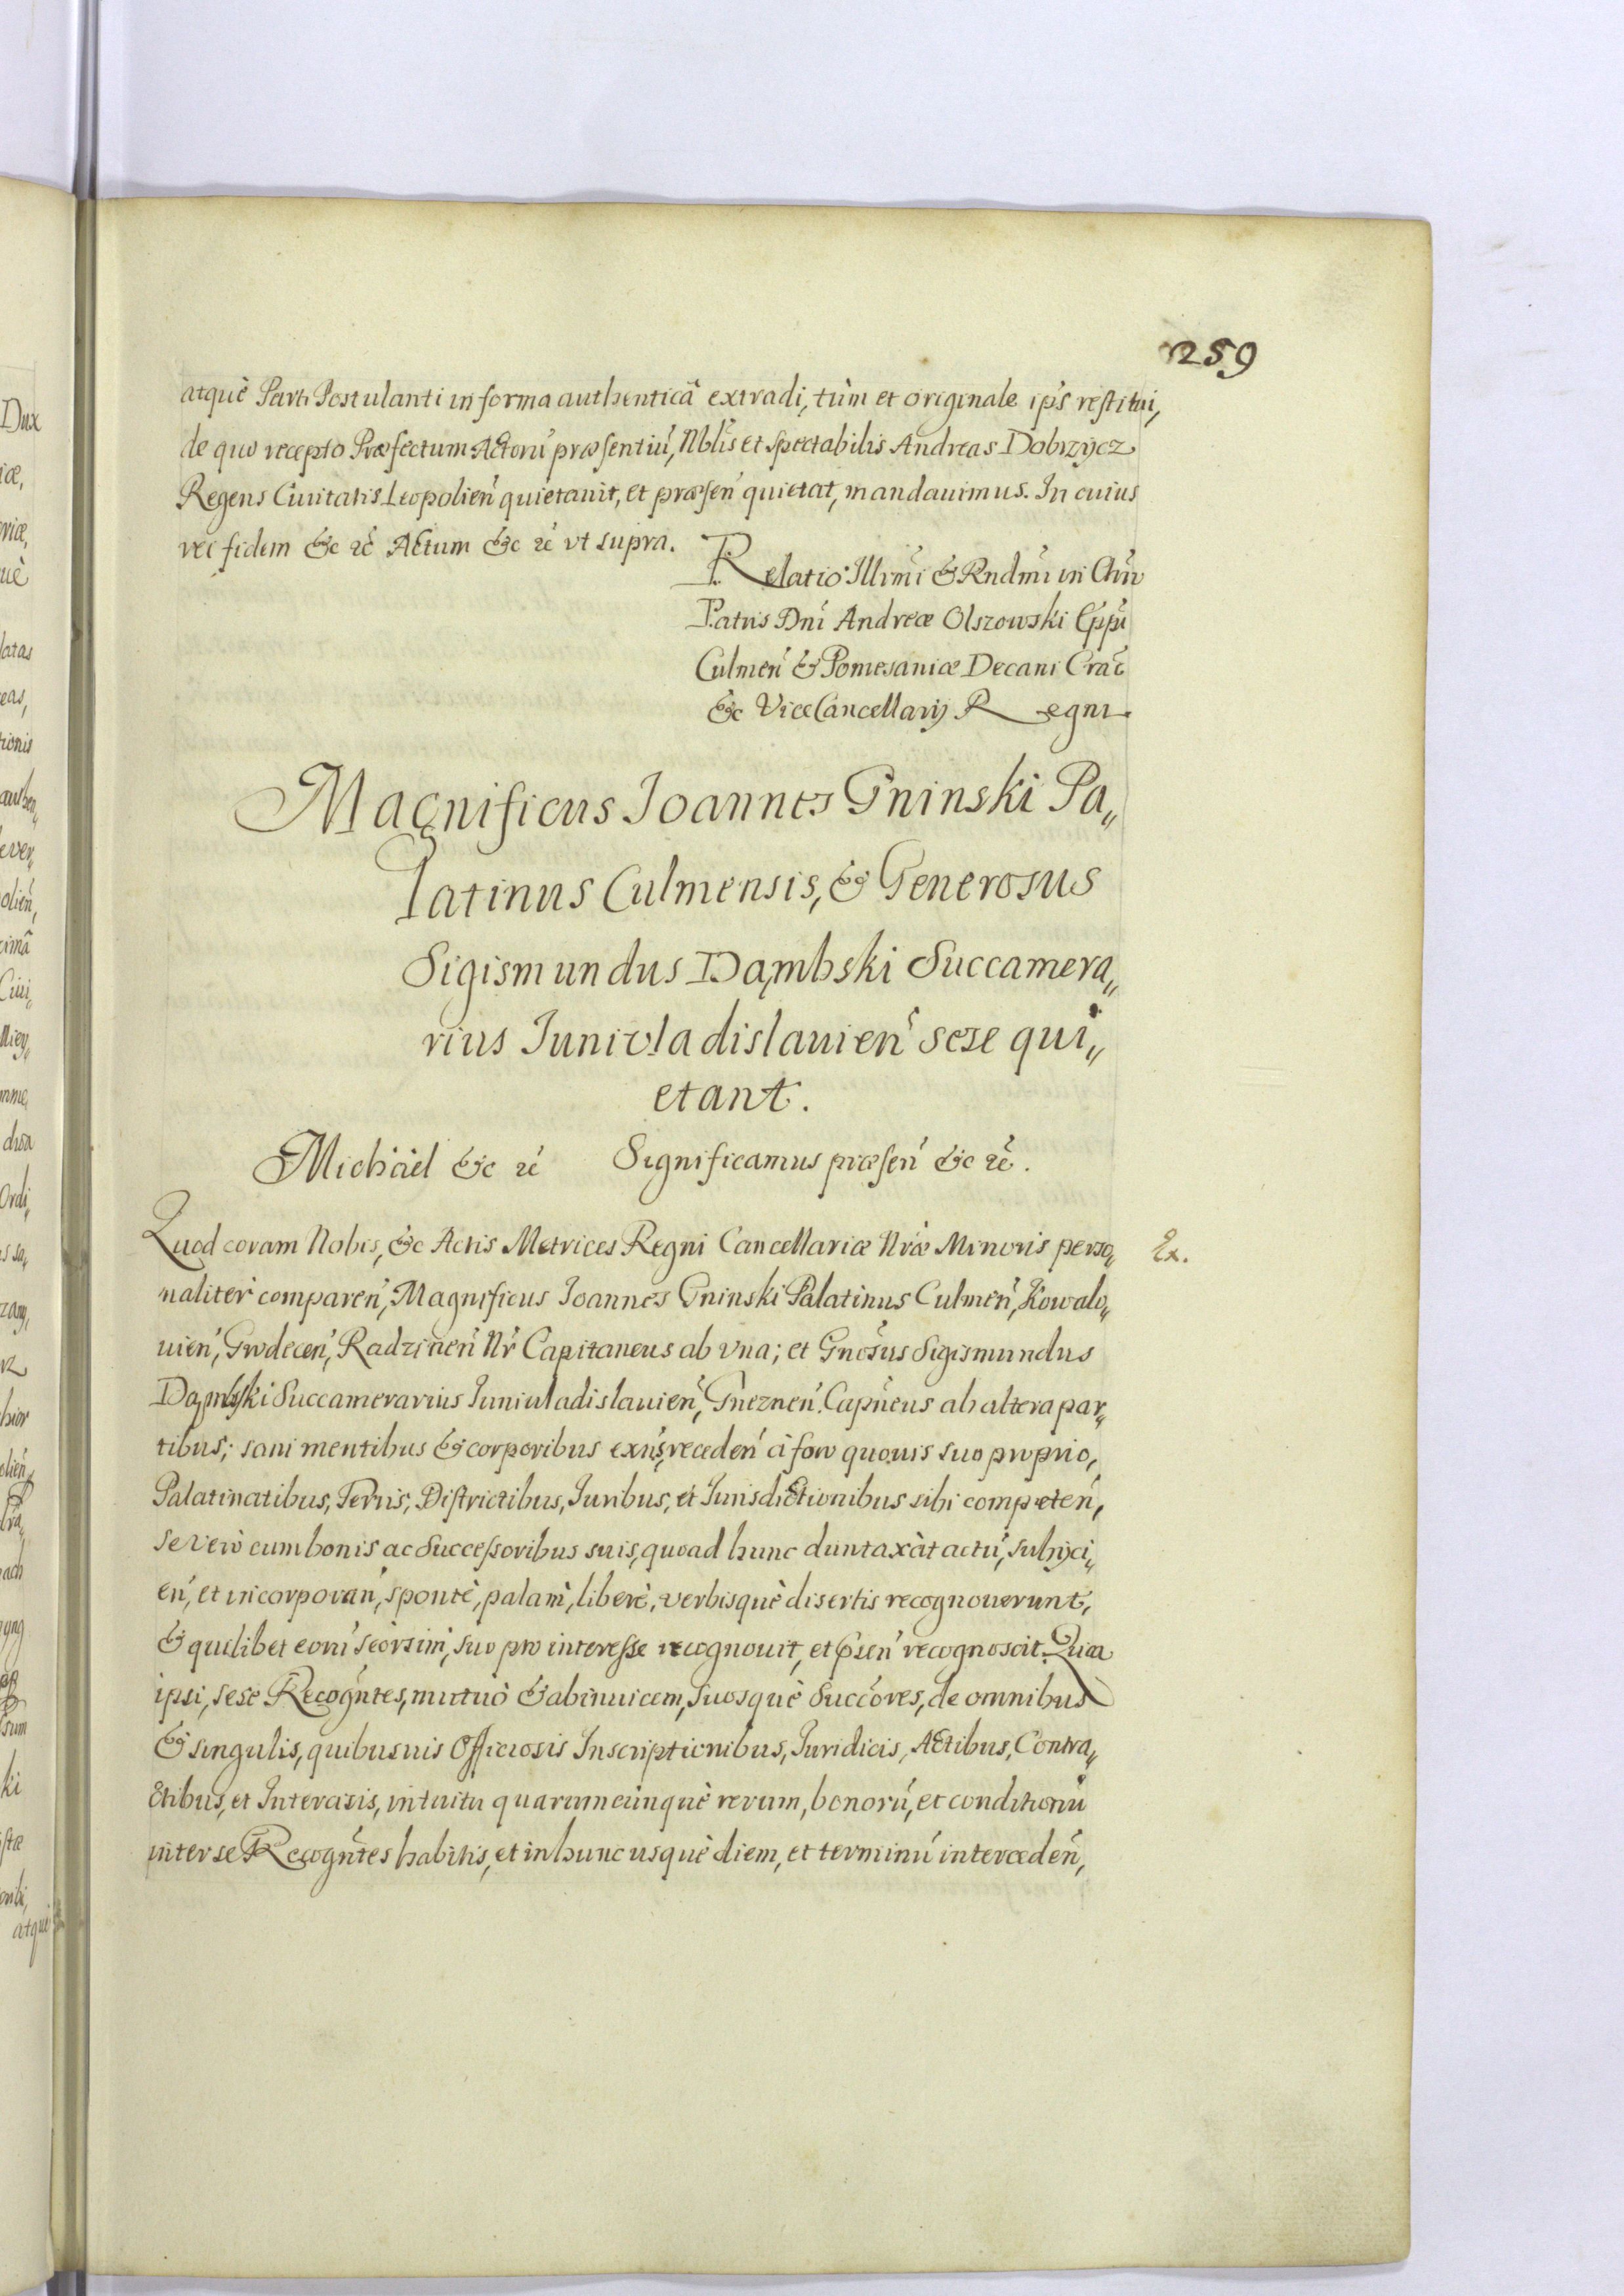 259
atquè Parti Postulanti in forma authenticâ extradi, tùm et originale ips̃ restitui,
de quo recepto Præfectum Actorũ præsentiũ, Nblĩs et Spectabilis Andreas Dobrzycz
Regens Ciuitatis Leopolień quietauit, et præseń quietat, mandauimus. In cuius
rei fidem &c rc̃ Actum &c rc̃ vt supra.
Relatio Illrmĩ & Rndmĩ in Chrõ
Patris Dnĩ Andreæ Olszowski Eppĩ
Culmeń & Pomesaniæ Decani Crac̃
&c ViceCancellarij Regni
Magnificus Joannes Gninski Pa„
latinus Culmensis, & Generosus
Sigismundus Dąmbski Succamera„
rius Juniuladislauień sese qui„
etant.
Michaël &c rc̃ Significamus præseń &c rc̃.
Quod coram Nobis, &c Actis Metrices Regni Cancellariæ Nrãe Minoris perso„
Ex.
naliter compareń, Magnificus Joannes Gninski Palatinus Culmeń, Kowalo„
uień, Grodeceń, Radzineń Nr̃ Capitaneus ab vna; et Gnõsus Sigismundus
Dąmbski Succamerarius Juniuladislauień, Gnezneń. Capñeus ab altera par„
tibus; sani mentibus & corporibus exñs, recedeń à foro quouis suo proprio,
Palatinatibus, Terris, Districtibus, Juribus, et Jurisdictionibus sibi competeń,
se verò cum bonis ac Successoribus suis, quoad hunc duntaxàt actũ, subijci„
eń, et incorporań, spontè, palam̀, liberè, verbisquè disertis recognouerunt,
& quilibet eorũ seorsim̀, suo pro interesse recognouit, et p̃seń recognoscit. Quia
ipsi, sese Recogñtes, mutuò & abinuicem, Suosquè Succõres, de omnibus
& singulis, quibusuis Officiosis Inscriptionibus, Juridicis, Actibus, Contra„
ctibus, et Intercisis, intuitu quarumcùnquè rerum, bonorũ, et conditionũ
inter se Recogñtes habitis, et in hunc usquè diem, et terminũ intercedeń,